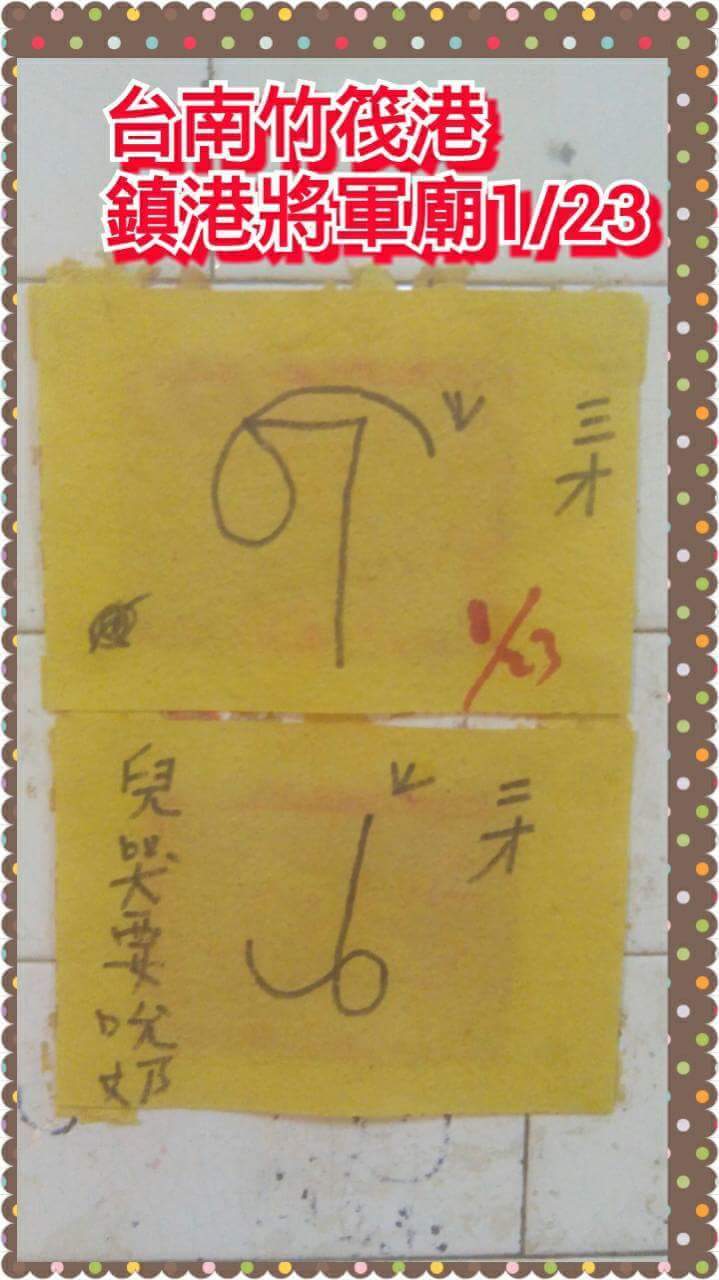 台南竹筏港
鎮港將軍廟1/23
三才
1/23
三才
兒哭要吮奶